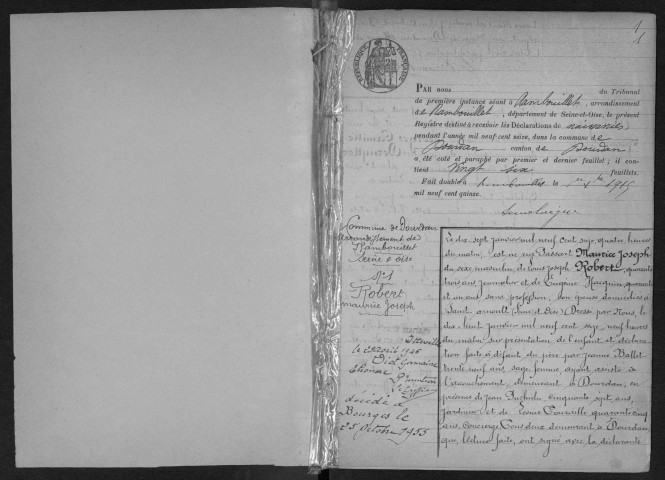 1
1
RÉPUBLIQUE FRANÇAISE
PAR nous du Tribunal
de première instance séant à Rambouillet, arrondissement
de Rambouillet, département de Seine-et-Oise, le présent
Registre destiné à recevoir les Déclarations de naissances
pendant l'année mil neuf cent seize, dans la commune de
Dourdan canton de Dourdan
a été coté et paraphé par premier et dernier feuillet; il con-
tient vingt six feuillets.
Fait double à Rambouillet le 1915
mil neuf cent quinze.
Commune de Dourdan
arrondissement de
Rambouillet
Seine & Oise
N° 1
Robert
Maurice Joseph
le avril 1946
Germaine
décédé à
Bourges le
25 octobre 1955
Le dix sept janvier mil neuf cent seize, quatre heures
du matin, est né rue Maurice Joseph
du sexe masculin, de Louis Joseph Robert, quarante
trois ans, journalier et de Eugénie quarante
et un ans sans profession, son épouse domiciliés à
Saint Arnoult (Seine et Oise) Dressé par Nous, le
dix huit janvier mil neuf cent seize, neuf heures
du matin sur présentation de l'enfant et déclara-
tion faite à défaut du père par Jeanne Ballet
trente neuf ans sage femme, ayant assisté à
l'accouchement, demeurant à Dourdan, en
présence de Jean cinquante sept ans,
jardinier et de quarante cinq
ans, concierge Tous deux demeurant à Dourdan
qui, lecture faite, ont signé avec la déclarante